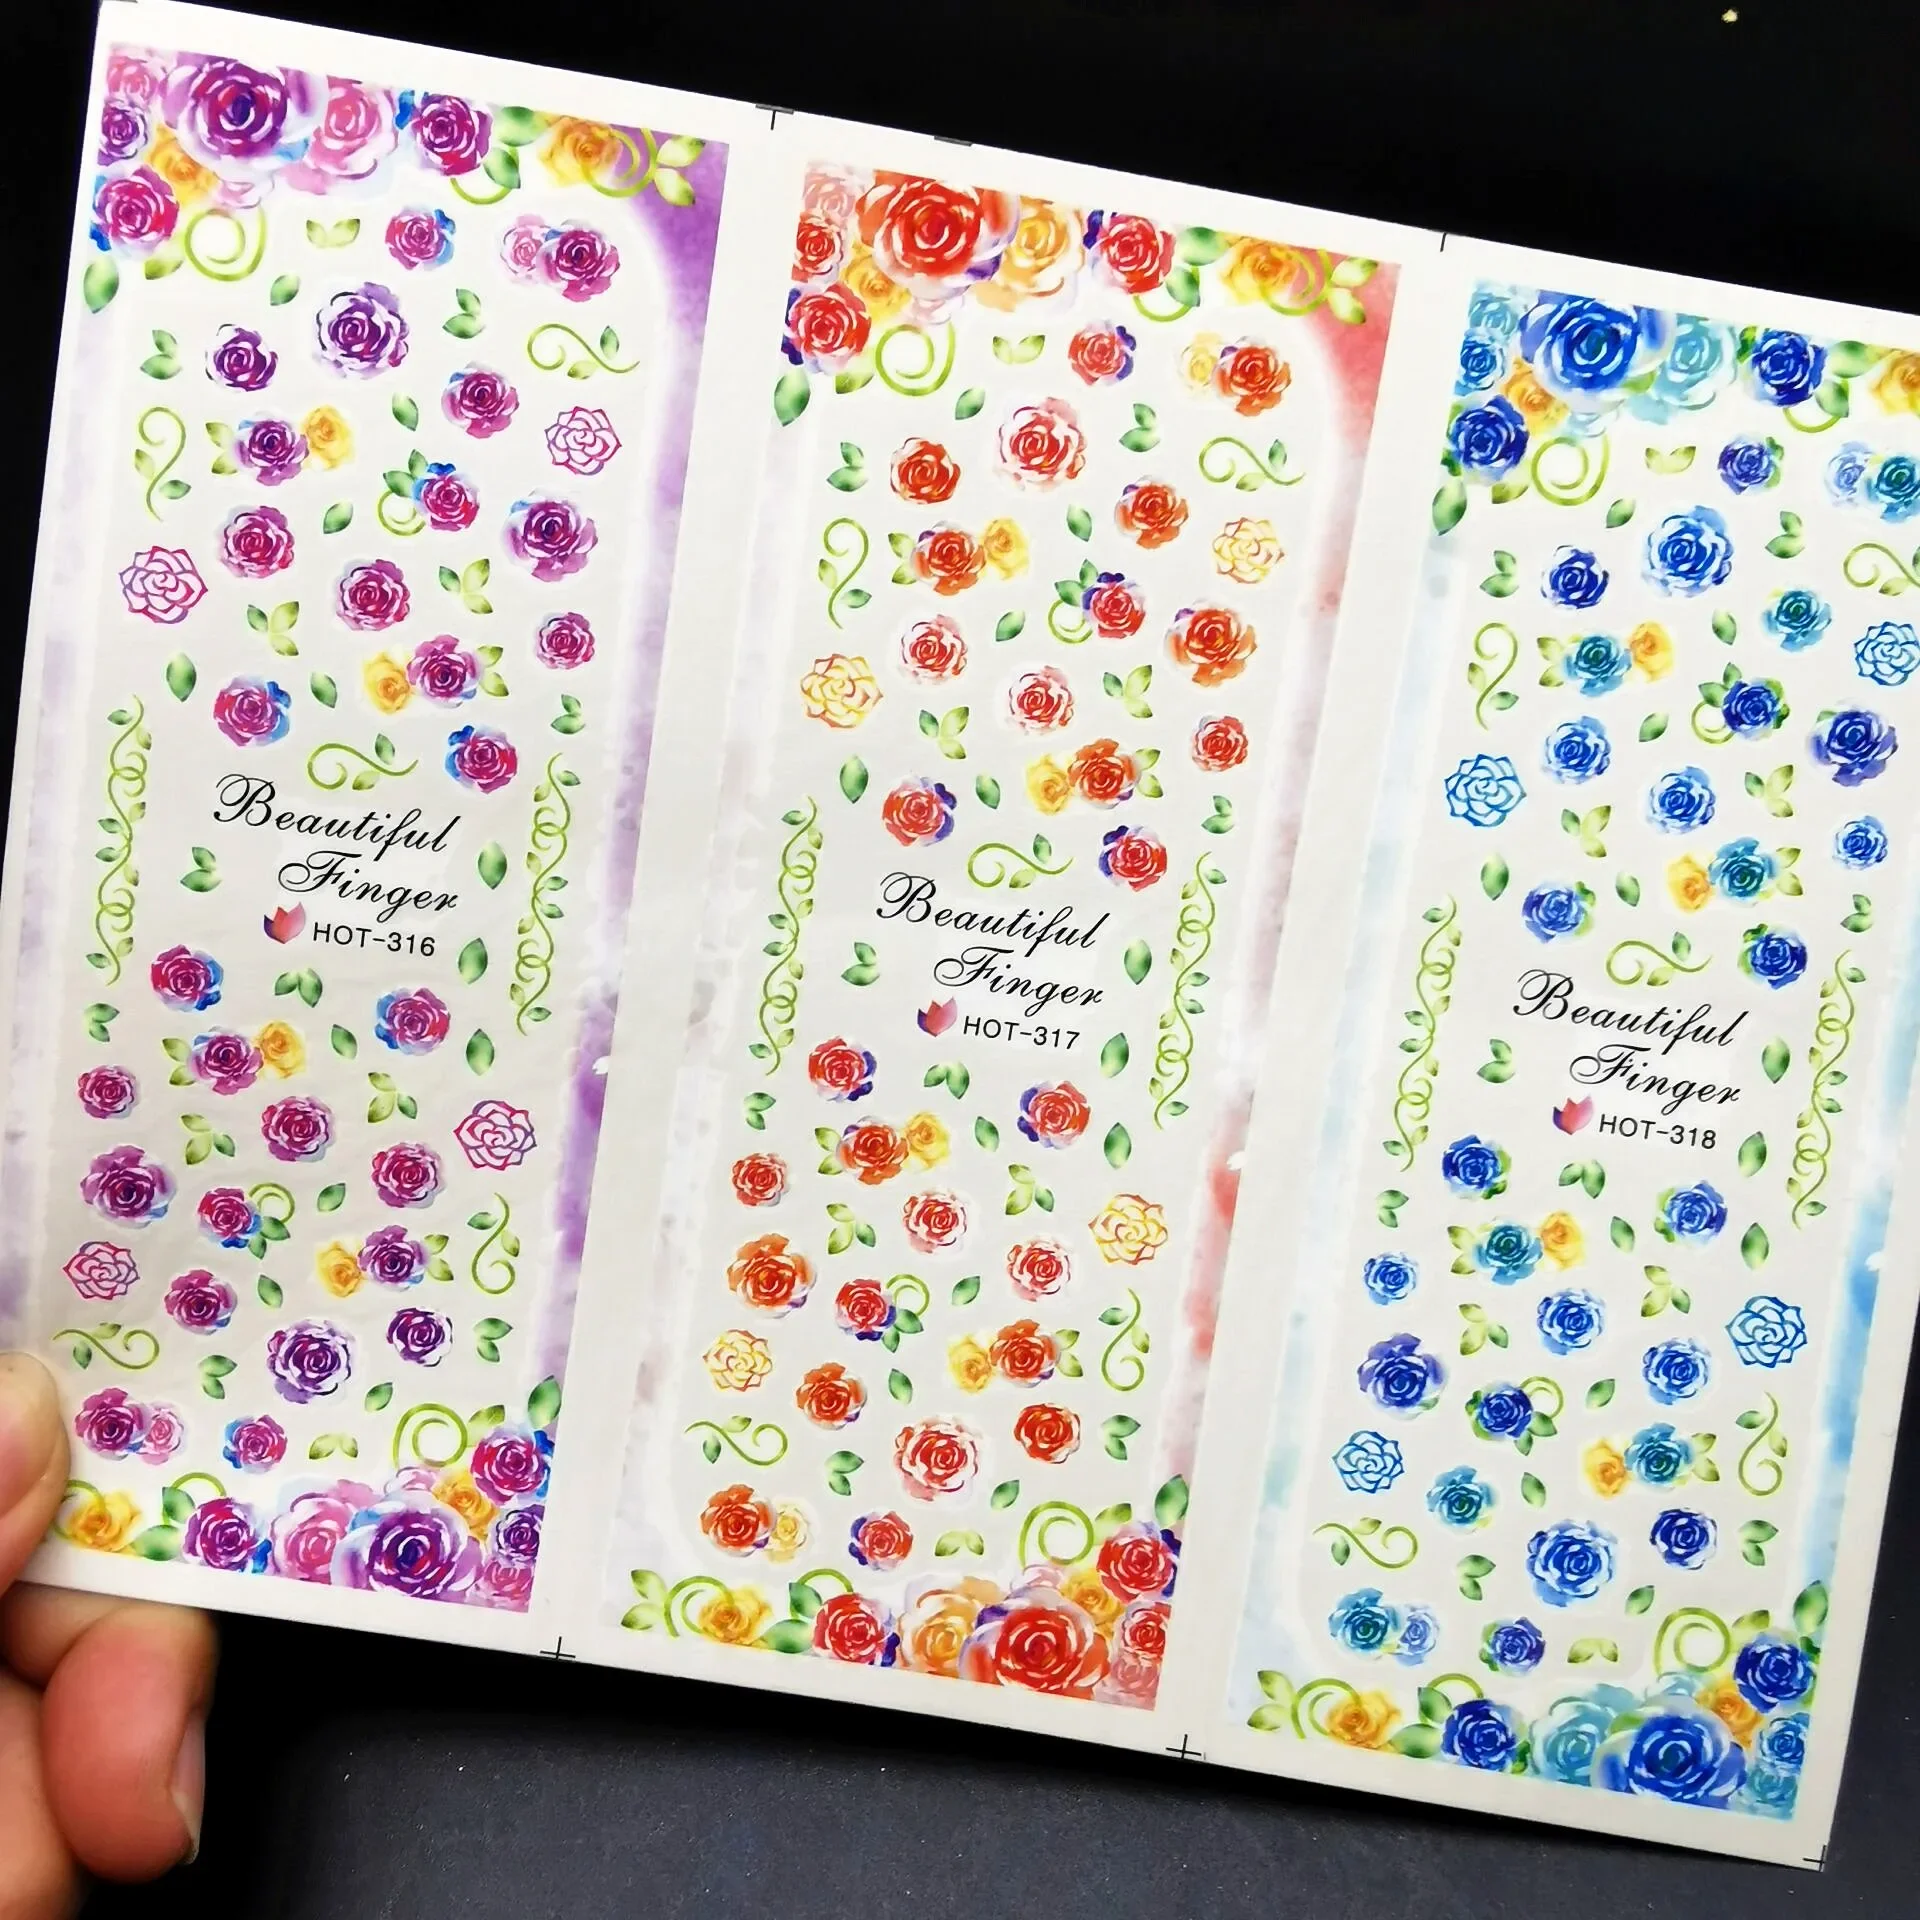 Beautiful
Finger
HOT-316
Beautiful
Finger
HOT-317
Beautiful
Finger
HOT-318